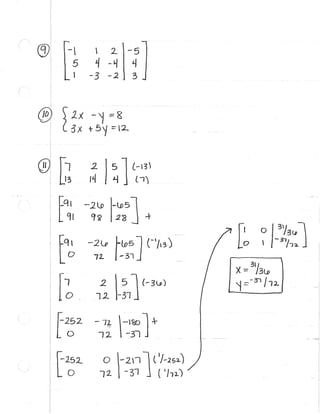 9
-1 1 2 | -5
5 4 -4 | 4
1 -3 -2 | 3
10 { 2x - y = 8
3x + 5y = 12
11 [ 7 2 | 5 ] (-13)
[ 13 14 | 4 ] (7)
[ -91 -26 | -65 ]
[ 91 98 | 28 ] +
[ -91 -26 | -65 ] (-1/13)
[ 0 72 | -37 ]
[ 7 2 | 5 ] (-36)
[ 0 72 | -37 ]
[ -252 -72 | -180 ] +
[ 0 72 | -37 ]
[ -252 0 | -217 ] (1/-252)
[ 0 72 | -37 ] (1/72)
[ 1 0 | 31/36 ]
[ 0 1 | -37/72 ]
x = 31/36
y = -37/72